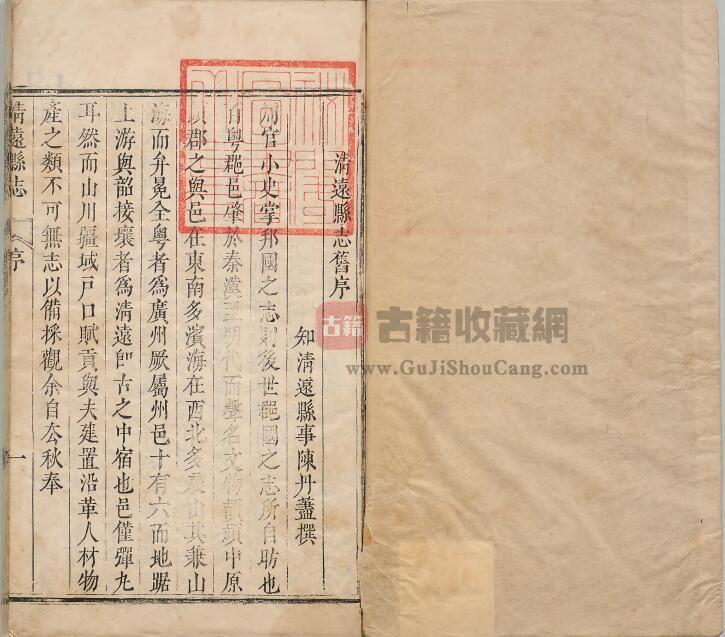 清遠縣志舊序
知清遠縣事陳丹藎撰
周官小史掌邦國之志則後世郡國之志所自昉也
自粤郡邑肇於秦漢至明代而聲名文物頡頏中原
郡之與邑在東南多濱海在西北多及山其兼山
海而弁冕全粤者爲廣州厥屬州邑十有六而地踞
上游與韶接壤者爲清遠卽古之中宿也邑僅彈丸
耳然而山川疆域戸口賦貢與夫建置沿革人材物
產之類不可無志以備採觀余自去秋奉
清遠縣志
序
一
古籍
古籍收藏網
www.GuJiShouCang.com